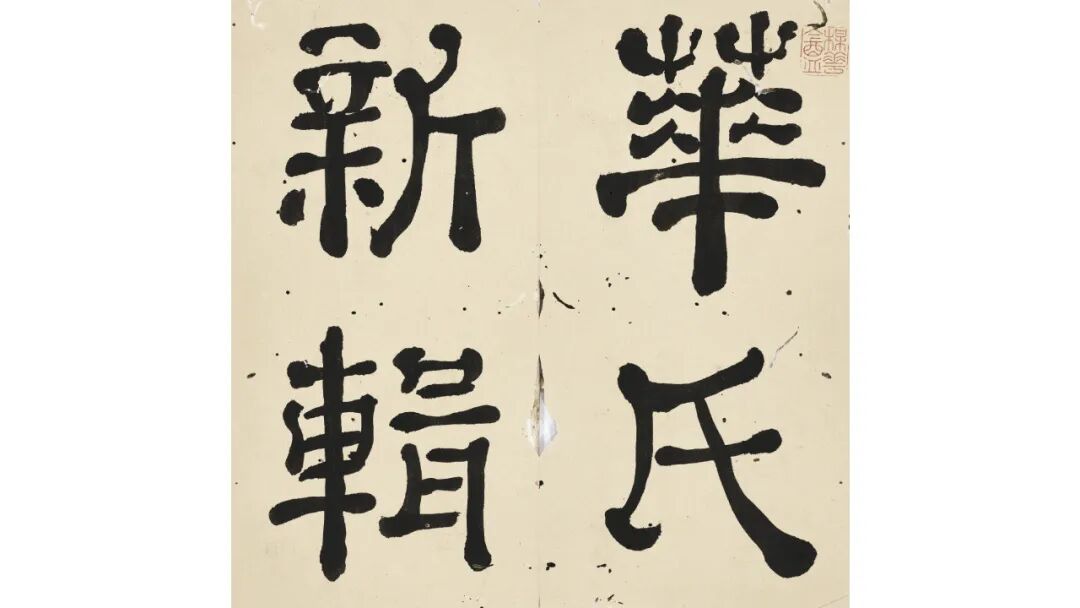 華氏
新輯